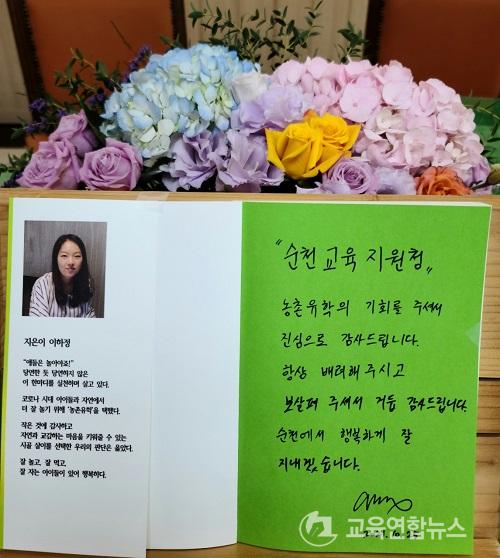 지은이 이하정
"애들은 놀아야죠!"
당연한 듯 당연하지 않은
이 한마디를 실천하며 살고 있다.
코로나 시대 아이들과 자연에서
더 잘 놀기 위해 '농촌유학'을 택했다.
작은 것에 감사하고
자연과 교감하는 마음을 키워줄 수 있는
시골 살이를 선택한 우리의 판단은 옳았다.
잘 놀고, 잘 먹고,
잘 자는 아이들이 있어 행복하다.
"순천 교육 지원청"
농촌유학의 기회를 주셔서
진심으로 감사드립니다.
항상 배려해 주시고
보살펴 주셔서 거듭 감사드립니다.
순천에서 행복하게 잘
지내겠습니다.
교육연합뉴스